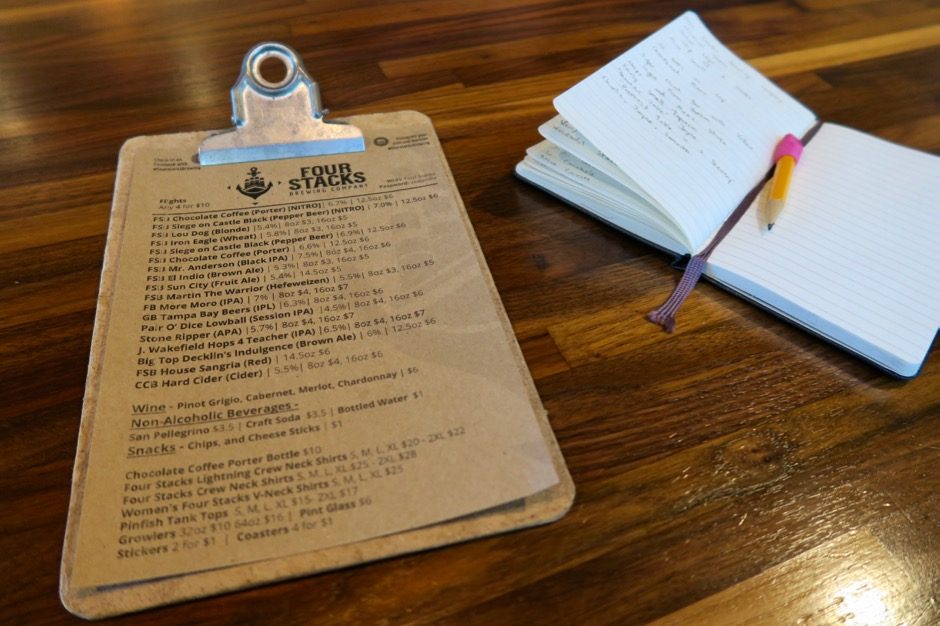 Check in on
Untappd with
FOUR
STACKS
BREWING COMPANY
Flights
Any 4 for $10
Password:
FSB Chocolate Coffee (Porter) [NITRO]| 6.7% | 12.5oz $6
FSB Siege on Castle Black (Pepper Beer) [NITRO] | 7.0% | 12.5oz $6
FSB Lou Dog (Blonde) |5.4%| 8oz $3, 16oz $5
FSB Iron Eagle (Wheat) | 5.8%| 8oz $3, 16oz $5
FSB Siege on Castle Black (Pepper Beer) |6.9%| 12.5oz $6
FSB Chocolate Coffee (Porter) | 6.6% | 12.5oz $6
FSB Mr. Anderson (Black IPA) | 7.5%| 8oz $4, 16oz $6
FSB El Indio (Brown Ale) | 5.3%| 8oz $3, 16oz $5
FSB Sun City (Fruit Ale) | 5.4%| 14.5oz $5
FSB Martin The Warrior (Hefeweizen) | 5.5%| 8oz $3, 16oz $5
FB More Moro (IPA) | 7% | 8oz $4, 16oz $7
GB Tampa Bay Beers (IPL) |6.3%| 8oz $4, 16oz $6
Pair O' Dice Lowball (Session IPA) |4.5%| 8oz $4, 16oz $6
Stone Ripper (APA) |5.7%| 8oz $4, 16oz $7
J. Wakefield Hops 4 Teacher (IPA) |6.5%| 8oz $4, 16oz $7
Big Top Decklin's Indulgence (Brown Ale) | 6% | 12.5oz $6
FSB House Sangria (Red) | 14.5oz $6
CCB Hard Cider (Cider) | 5.5%| 8oz $4, 16oz $6
Wine - Pinot Grigio, Cabernet, Merlot, Chardonnay | $6
Non-Alcoholic Beverages -
San Pellegrino $3.5 | Craft Soda $3.5 | Bottled Water $1
Snacks - Chips, and Cheese Sticks | $1
Chocolate Coffee Porter Bottle $10
Four Stacks Lightning Crew Neck Shirts S, M, L, XL $20 - 2XL $22
Four Stacks Crew Neck Shirts S, M, L, XL $25 - 2XL $28
Women's Four Stacks V-Neck Shirts S, M, L, XL $25
Pinfish Tank Tops S, M, L, XL $15- 2XL $17
Growlers 32oz $10 64oz $16 | Pint Glass $6
Stickers 2 for $1 | Coasters 4 for $1